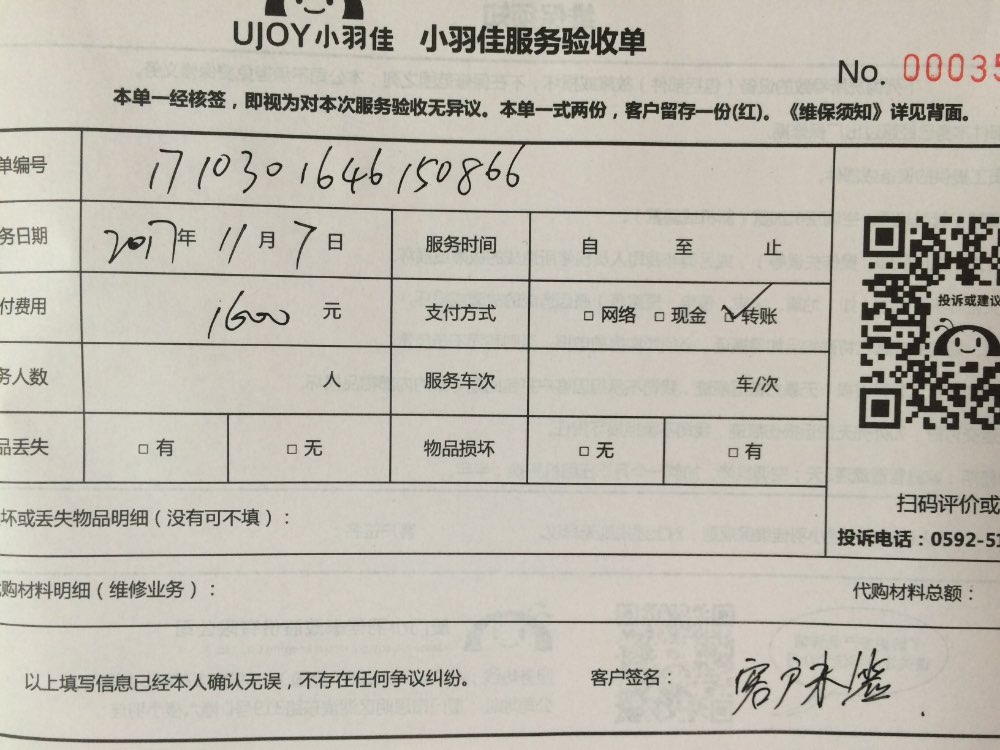 UJOY小羽佳 小羽佳服务验收单
No. 00035
本单一经核签，即视为对本次服务验收无异议。本单一式两份，客户留存一份(红)。《维保须知》详见背面。
单编号 1710301646150866
务日期 2017年 11月 7日 服务时间 自 至 止
付费用 1600 元 支付方式 □ 网络 □ 现金 ☑ 转账
投诉或建议
务人数 人 服务车次 车/次
品丢失 □ 有 □ 无 物品损坏 □ 无 □ 有
扫码评价或
坏或丢失物品明细（没有可不填）：
投诉电话：0592-51
购材料明细（维修业务）： 代购材料总额：
以上填写信息已经本人确认无误，不存在任何争议纠纷。 客户签名： 客户未签